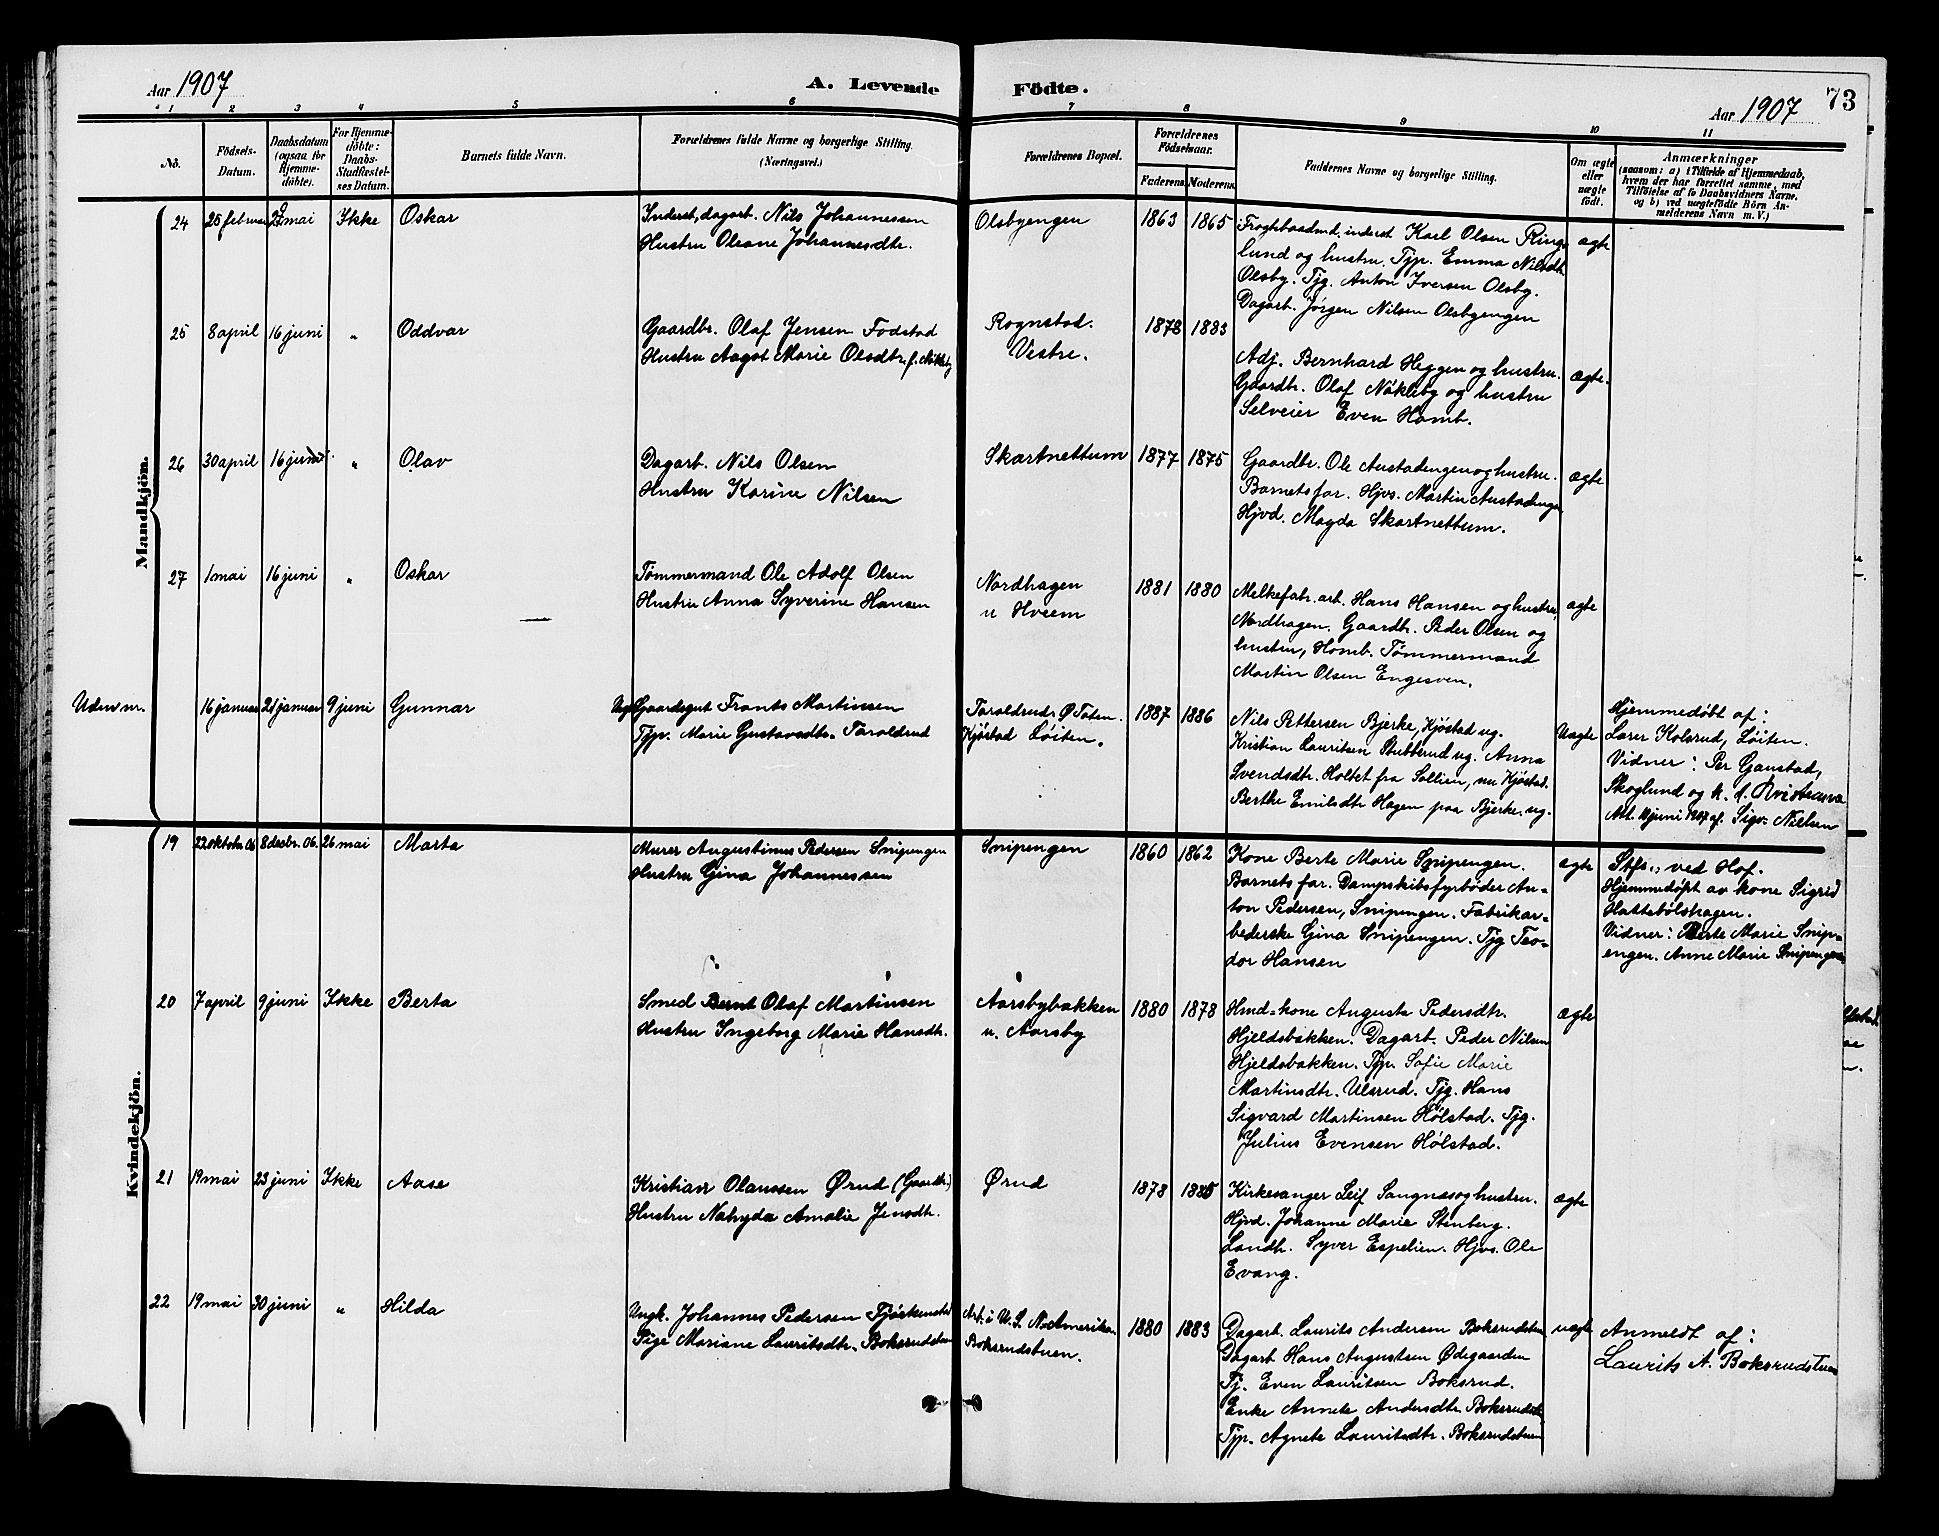 Aar 1907
A. Levende Födte.
Aar 1907
73
1 2 3 4 5 6 7 8 9 10 11
No.
Födsels-Datum.
Daabsdatum (ogsaa for Hjemmedöbte).
For Hjemmedöbte: Daabs-Stadfæstelses Datum.
Barnets fulde Navn.
Forældrenes fulde Navne og borgerlige Stilling.
(Næringsvei.)
Forældrenes Bopæl.
Forældrenes Födselsaar.
Faderens. Moderens.
Faddernes Navne og borgerlige Stilling.
Om ægte eller uægte födt.
Anmærkninger
(saasom: a) i Tilfælde af Hjemmedaab,
hvem der har forrettet samme, med
Tilföielse af to Daabsvidners Navne,
og b) ved uægtefödte Börn An-
melderens Navn m. V.)
Mandkjön.
24 25 februar mai Ikke Oskar
Inderst, dagarb. Nils Johannessen
Hustru Oleane Johannesdtr.
Olsbyengen
1863 1865
Fragtebaadmd. inderst Karl Olsen Ring-
lund og hustru. Typ. Emma Nilsdt.
Olsby. Tjg. Anton Iversen Olsby.
Dagarb. Jørgen Nilsen Olsbyengen
ægte
25 8 april 16 juni " Oddvar
Gaardbr. Olaf Jensen Fodstad
Hustru Aagot Marie Olsdtr. f. Nökleby
Rognstad.
Vestre.
1878 1883
Adj. Bernhard Heggen og hustru.
Gaardbr. Olaf Nökleby og hustru
Selveier Even Homb.
ægte.
26 30 april 16 juni " Olav
Dagarb. Nils Olsen
Hustru Karine Nilsen
Skartnettum
1877 1875
Gaardbr. Ole Austadengen og hustru.
Barnets far. Hjvs. Martin Austadengen
Hjvd. Magda Skartnettum.
ægte
27 1 mai 16 juni " Oskar
Tømmermand Ole Adolf Olsen
Hustru Anna Syverine Hansen
Nordhagen
u Hveem
1881 1880
Melkefabr. arb. Hans Hansen og hustru,
Nordhagen. Gaardbr. Peder Olsen og
hustru, Homb. Tømmermand
Martin Olsen Engesven.
ægte
Uden nr. 16 januar 21 januar 9 juni Gunnar
Ungk. Gaardsgut Frants Martinsen
Typ. Marie Gustavsdtr. Taraldrud
Taraldrud Ø Toten.
Kjöstad Löiten.
1887 1886
Nils Pettersen Bjerke, Kjöstad ug.
Kristian Lauritsen Stubberud ug. Anna
Svendsdtr. Holtet fra Sollien, nu Kjöstad.
Berthe Emilsdtr Hagen paa Bjerke. ug.
Uægte
Hjemmedöbt af:
Lærer Kolsrud, Löiten.
Vidner: Per Ganstad,
Skoglund og k. f. Kristiansa
Att. 11 juni 1907 af. Sigv. Nielsen
Kvindekjön.
19 22 oktober 06 8 desbr. 06. 26 mai Marta
Murer Augustinus Pedersen Snipengen
Hustru Gina Johannessen
Snipengen
1860 1862
Kone Berte Marie Snipengen.
Barnets far. Dampskibsfyrbøder An-
ton Pedersen, Snipengen. Fabrikar-
bederske Gina Snipengen. Tjg Teo-
dor Hansen
ægte
Stfs. ved Hof.
Hjemmedöpt av kone Sigrid
Hattebölshagen.
Vidner: Berte Marie Snip-
engen. Anne Marie Snipengen
20 7 april 9 juni Ikke Berta
Smed Bernt Olaf Martinsen
Hustru Ingeborg Marie Hansdtr.
Aarsbybakken
u. Aarsby
1880 1878
Hmd-kone Auguste Pedersdtr.
Hjeldsbakken. Dagarb. Peder Nilsen
Hjeldsbakken. Typ. Sofie Marie
Martinsdtr. Ulsrud. Tjg. Hans
Sigvard Martinsen Hölstad. Tjg.
Julius Evensen Hölstad.
ægte
21 19 mai 23 juni Ikke Aase
Kristian Olaussen Ørud (Gaardbr.)
Hustru Nahyda Amalie Jensdtr.
Ørud
1878 1885
Kirkesanger Leif Sangnæs og hustru.
Hjvd. Johanne Marie Stenberg.
Landh. Syver Espelien. Hjvs. Ole
Evang.
ægte
22 19 mai 30 juni " Hilda
Ungk. Johannes Pedersen Fjörkenstad
Pige Mariane Lauritsdtr. Boksrudstuen
Arb. i U. S. N. Amerika.
Boksrudstuen.
1880 1883
Dagarb. Laurits Andersen Boksrudstuen
Dagarb Hans Augustsen Ødegaarden
Tj. Even Lauritsen Boksrud.
Enke Annete Andersdtr Boksrudst.
Typ. Agnete Lauritsdtr. Boksrudstuen
uægte
Anmeldt af:
Laurits A. Boksrudstuen